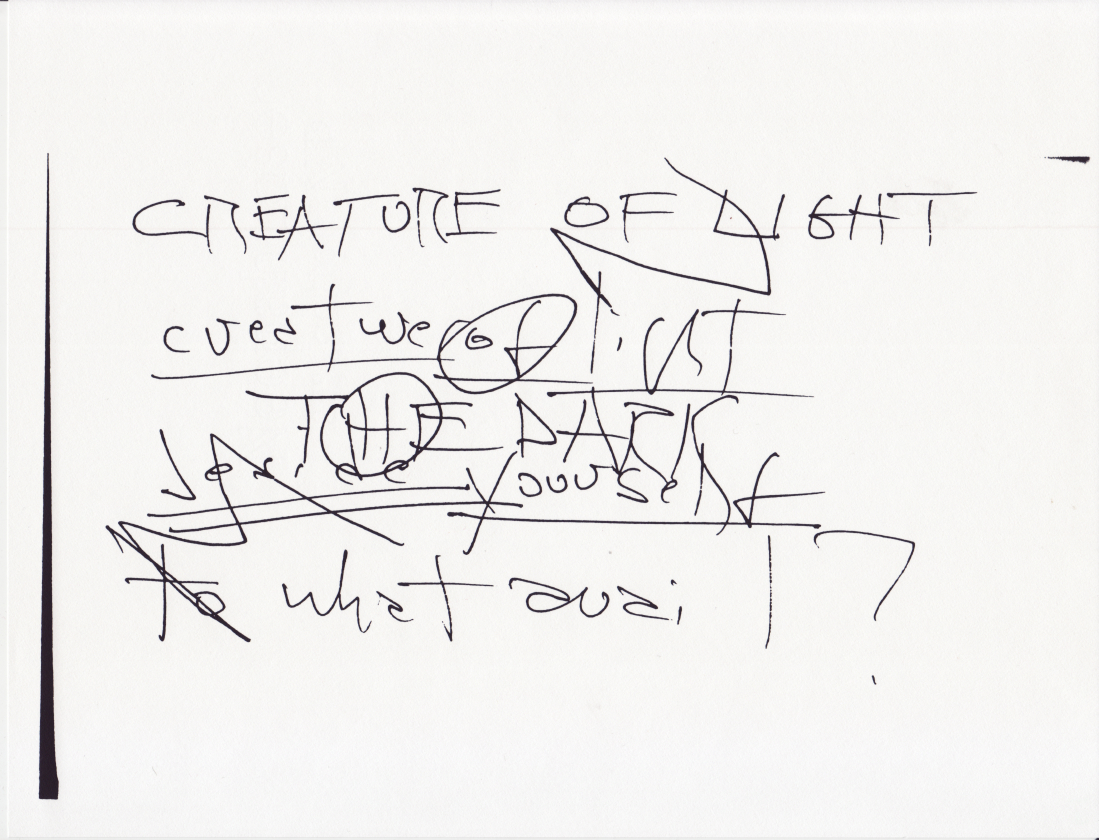 CREATURE OF LIGHT
creature of lust
THE DARK
yourself
to what avail ?